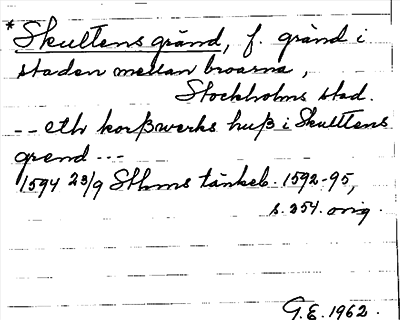 *Skultens gränd, f. gränd i
staden mellan broarna,
Stockholms stad.
-- eth korßwerks huß i Skulttens
grend ---
1594 23/9 Sthms tänkeb. 1592-95,
s. 254. orig.
G.E. 1962.